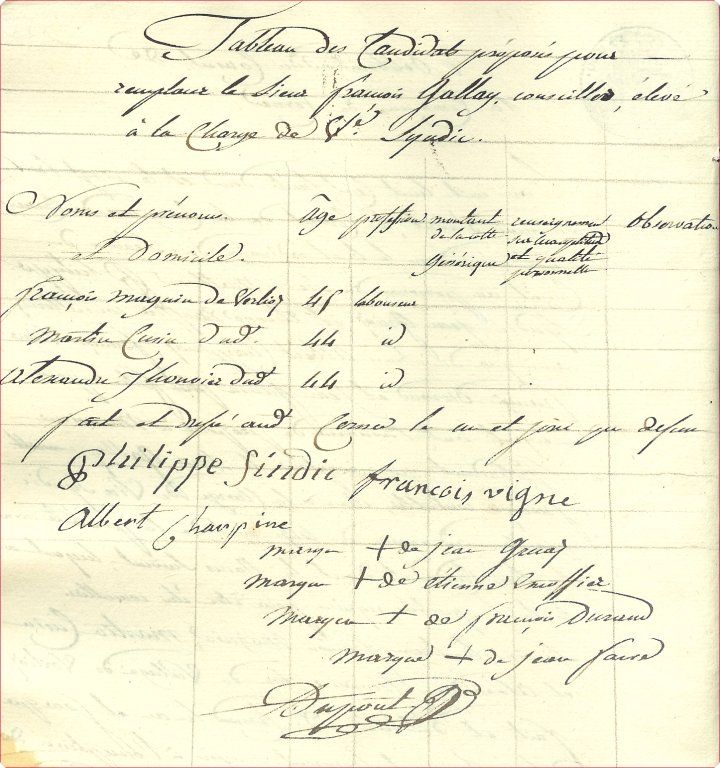 Tableau des Candidats proposés pour
remplacer le Sieur françois Gallay, conseiller, élevé
à la Charge de Sindic.
Noms et prénoms. âge profession montant renseignement Observation
et Domicile. de la cotte sur leur aptitude
Générique et qualité
personnelle
françois magnin de 45 laboureur
martin Cusin dud. 44 id
Alexandre dud. 44 id
fait et dressé aud. Cernex le an et jour que dessus
Philippe Sindic françois vigne
Albert Charpine
marque + de jean
marque + de étienne
marque + de françois Durand
marque + de jean favre
Dupont